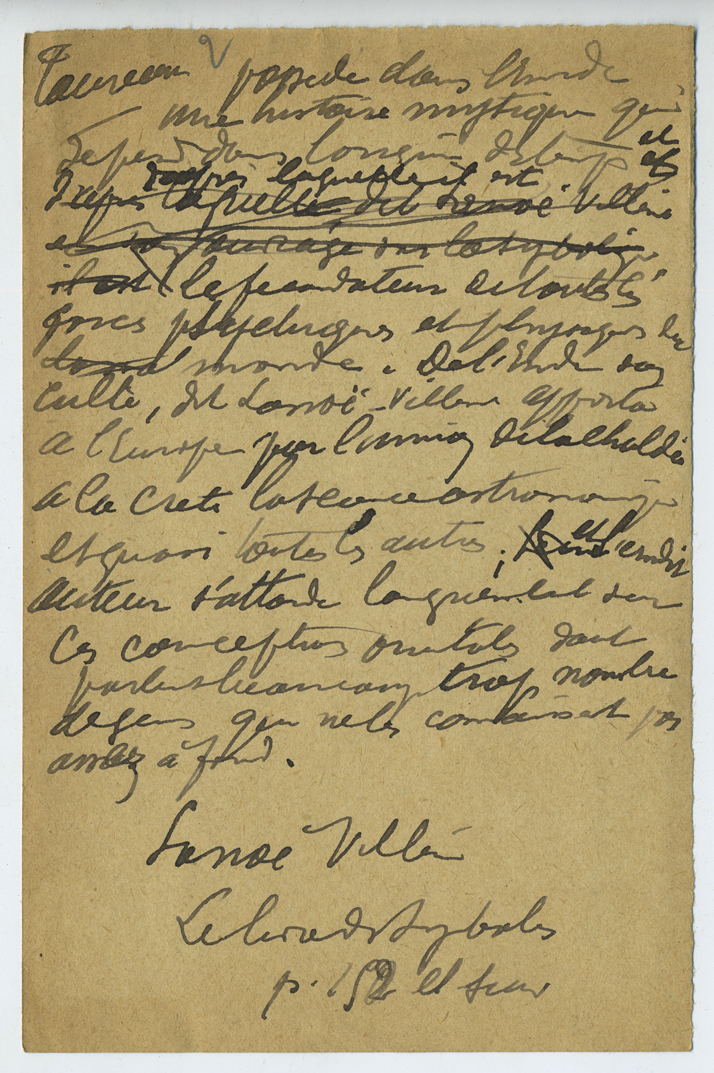 Taureau possede dans l'Inde
une histoire mythique qui
se perd dans longue des temps et
d'apres laquelle il est
d'apres laquelle, dit Lanoë Villène
en son ouvrage sur la symbolique
il est le fecondateur de toutes les
forces psychiques et physiques du
monde. De l'Inde son
culte, dit Lanoë-Villène apporta
à l'Europe par l'union de la Chaldée
à la Crete la science astronomique
et quasi toutes les autres; et l'erudit
auteur s'attarde longuement sur
ces conceptions orientales dont
parlent beaucoup trop nombre
de gens qui ne les connaissent pas
assez à fond.
Lanoë Villène
Le livre des Symboles
p. 152 et suiv